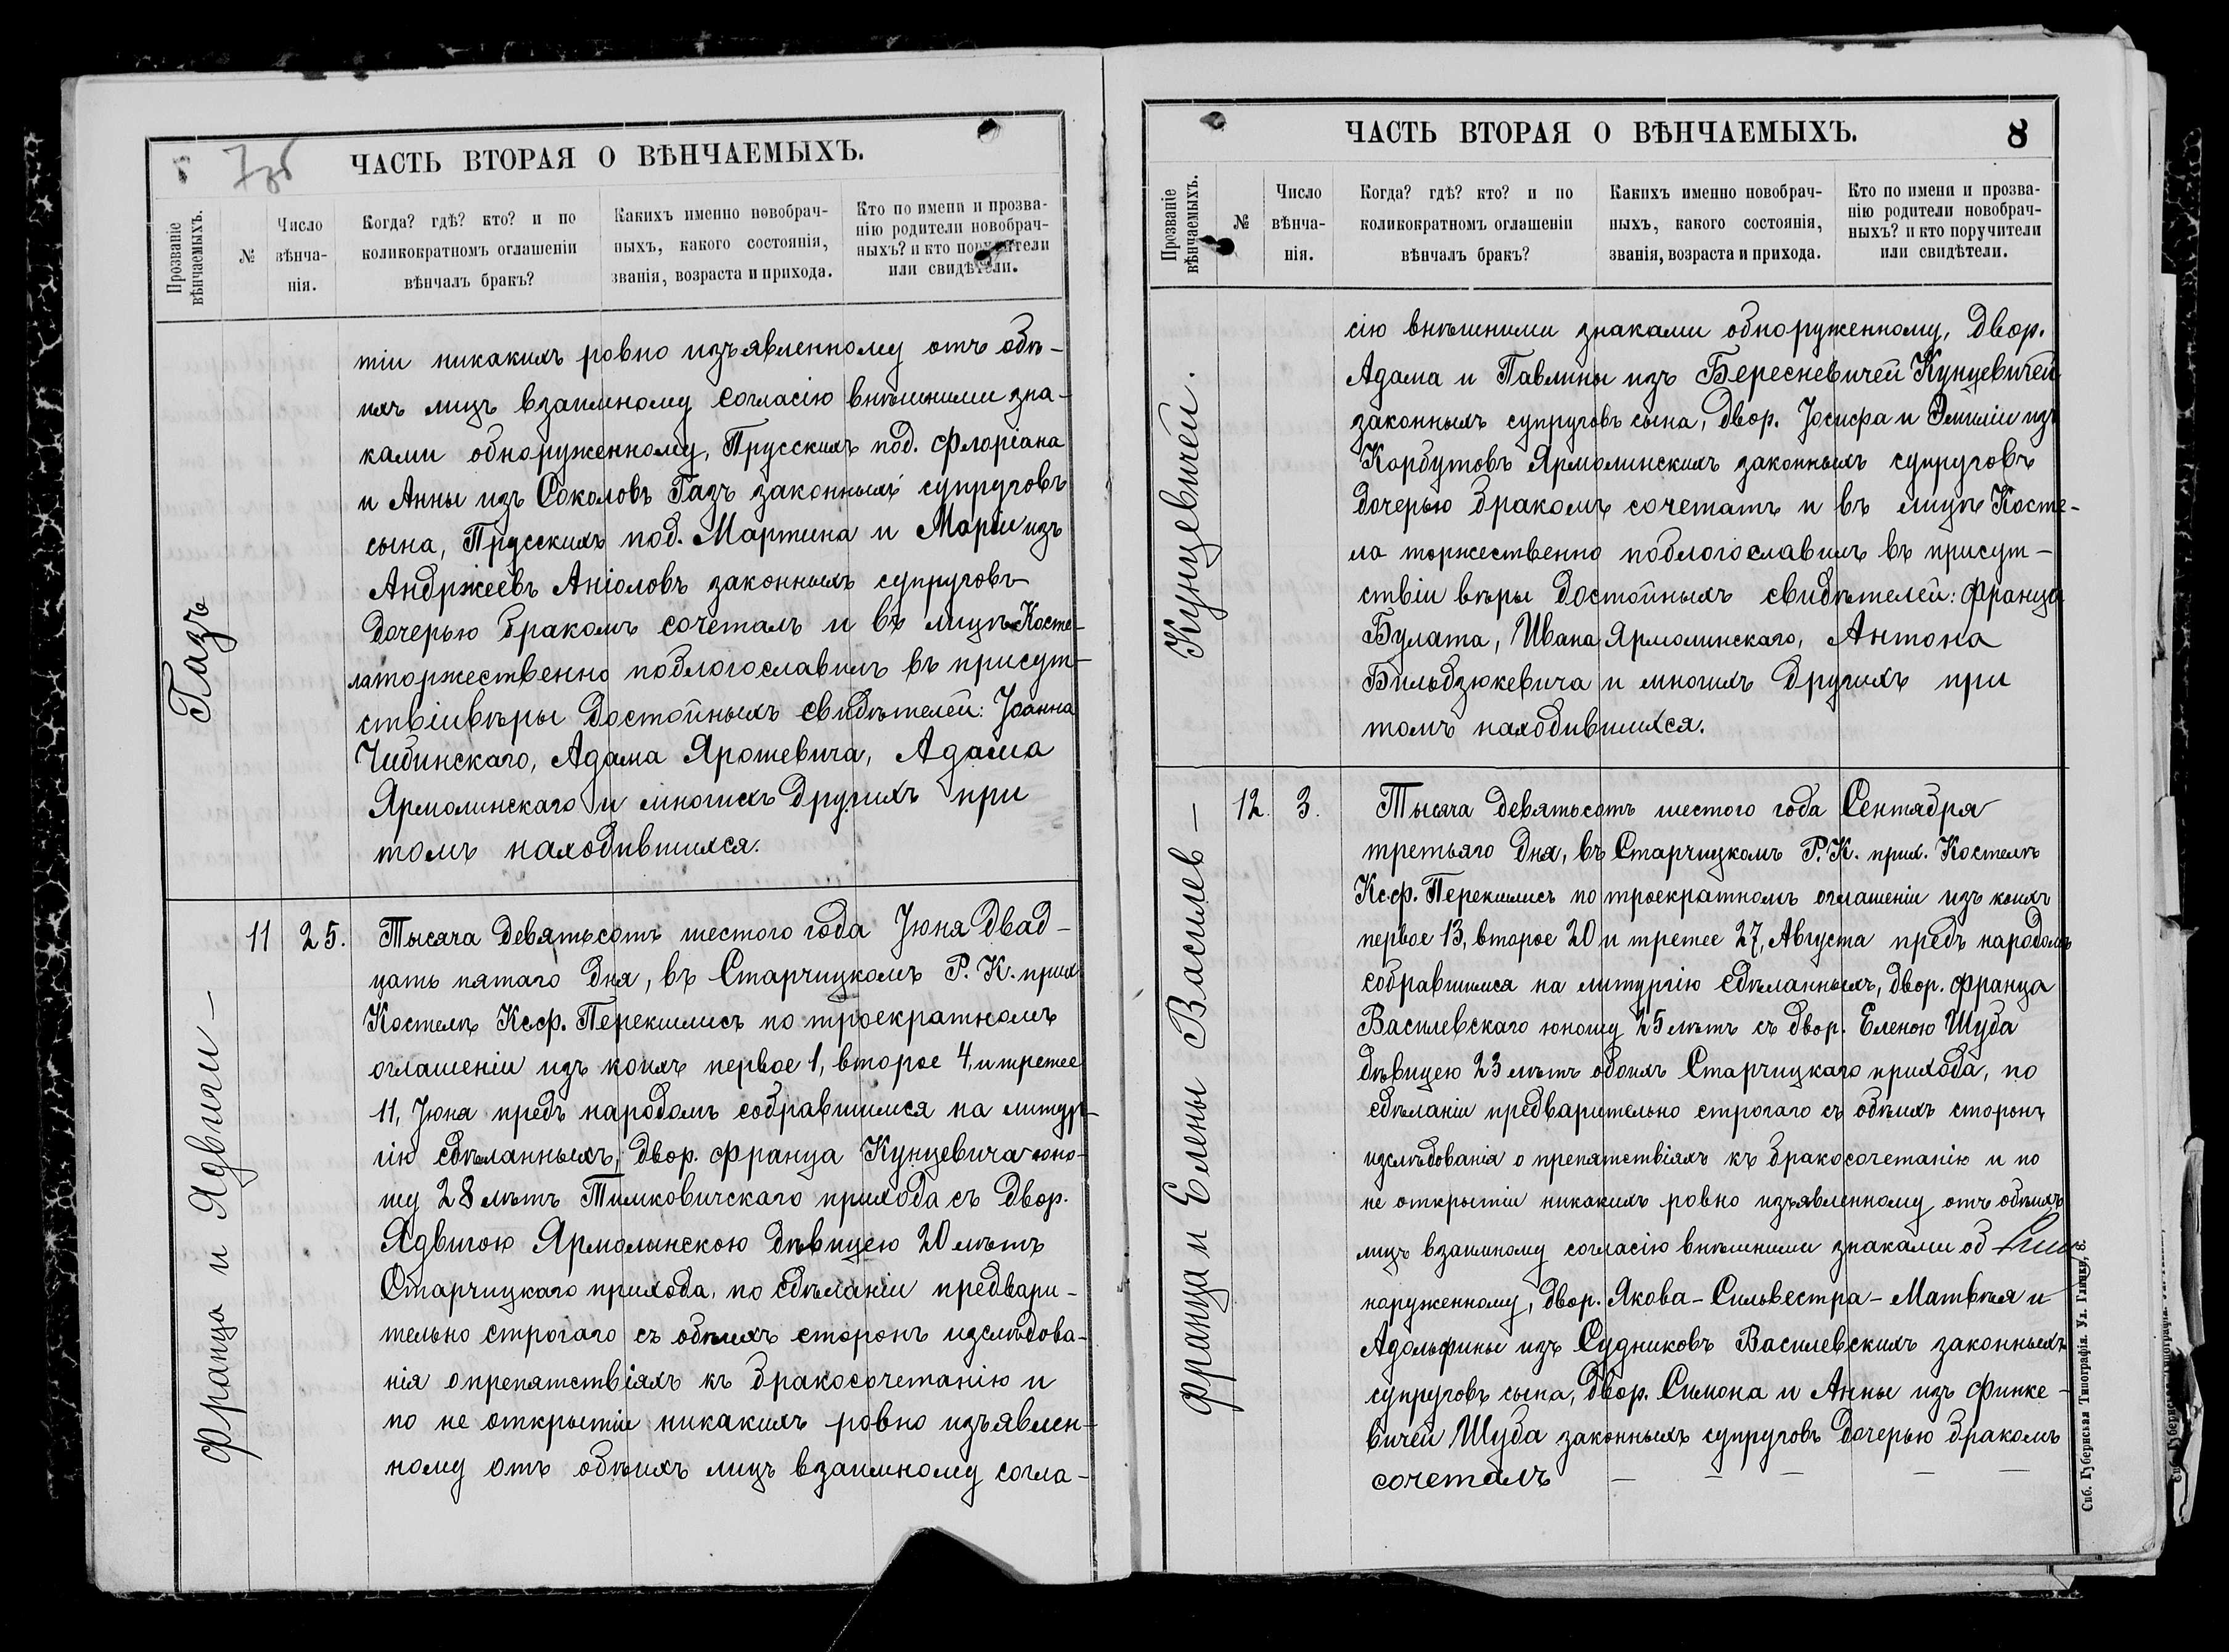 7об
ЧАСТЬ ВТОРАЯ О ВѢНЧАЕМЫХЪ.
Прозваніе вѣнчаемыхъ.
№
Число вѣнча-
нія.
Когда? гдѣ? кто? и по
коликократномъ оглашеніи
вѣнчалъ бракъ?
Какихъ именно новобрач-
ныхъ, какого состоянія,
званія, возраста и прихода.
Кто по имени и прозва-
нію родители новобрач-
ныхъ? и кто поручители
или свидѣтели.
Газъ
тіи никакихъ ровно изъявленному отъ обѣ-
ихъ лицъ взаимному согласію внѣшними зна-
ками обнаруженному, Прусскихъ под. Флоріана
и Анны изъ Соколовъ Газъ законныхъ супруговъ
сына, Прусскихъ под. Мартина и Маріи изъ
Андржеевъ Аніоловъ законныхъ супруговъ
дочерью бракомъ сочеталъ и въ лицѣ Косте-
ла торжественно поблогославилъ въ присут-
ствіи вѣры достойныхъ свидѣтелей: Іоанна
Чибинскаго, Адама Ярошевича, Адама
Ярмолинскаго и многихъ другихъ при
томъ находившихся.
Франца и Ядвиги —
11 25.
Тысяча девятьсотъ шестого года Іюня двад-
цать пятаго дня, въ Старчицкомъ Р. К. прих.
Костелѣ Ксф. Перекшлисъ по троекратномъ
оглашеніи изъ коихъ первое 1, второе 4, и третее
11, Іюня предъ народомъ собравшимся на литур-
гію сдѣланныхъ, двор. Франца Кунцевича юно-
шу 28 лѣтъ Тимковичскаго прихода съ двор.
Ядвигою Ярмолинскою дѣвицею 20 лѣтъ
Старчицкаго прихода, по сдѣланіи предвари-
тельно строгаго съ обѣихъ сторонъ изслѣдова-
нія о препятствіяхъ къ бракосочетанію и
по не открытіи никакихъ ровно изъявлен-
ному отъ обѣихъ лицъ взаимному согла-
ЧАСТЬ ВТОРАЯ О ВѢНЧАЕМЫХЪ.
8
Прозваніе вѣнчаемыхъ.
№
Число вѣнча-
нія.
Когда? гдѣ? кто? и по
коликократномъ оглашеніи
вѣнчалъ бракъ?
Какихъ именно новобрач-
ныхъ, какого состоянія,
званія, возраста и прихода.
Кто по имени и прозва-
нію родители новобрач-
ныхъ? и кто поручители
или свидѣтели.
Кунцевичей.
сію внѣшними знаками обноруженному, двор.
Адама и Павлины изъ Бересневичей Кунцевичей
законныхъ супруговъ сына, двор. Іосифа и Эмиліи изъ
Корбутовъ Ярмолинскихъ законныхъ супруговъ
дочерью бракомъ сочетатъ и въ лицѣ Косте-
ла торжественно поблогославилъ въ присут-
ствіи вѣры достойныхъ свидѣтелей: Франца
Булата, Ивана Ярмолинскаго, Антона
Бильдзюкевича и многихъ другихъ при
томъ находившихся.
Франца и Елены Василев —
12. 3.
Тысяча девятьсотъ шестого года Сентября
третьяго дня, въ Старчицкомъ Р. К. прих. Костелѣ
Ксф. Перекшлисъ по троекратномъ оглашеніи изъ коихъ
первое 13, второе 20 и третее 27, Августа предъ народомъ
собравшимся на литургію сдѣланныхъ, двор. Франца
Василевскаго юношу 25 лѣтъ съ двор. Еленою Шуба
дѣвицею 23 лѣтъ обоихъ Старчицкаго прихода, по
сдѣланіи предварительно строгаго съ обѣихъ сторонъ
изслѣдованія о препятствіяхъ къ бракосочетанію и по
не открытіи никакихъ ровно изъявленному отъ обѣихъ
лицъ взаимному согласію внѣшними знаками об
наруженному, двор. Якова-Сильвестра-Матвѣя и
Адольфины изъ Судниковъ Василевскихъ законныхъ
супруговъ сына, двор. Симона и Анны изъ Финке-
вичей Шуба законныхъ супруговъ дочерью бракомъ
сочеталъ — — — — —
Спб. Губернская Типографія. Ул. Глинки, 8.